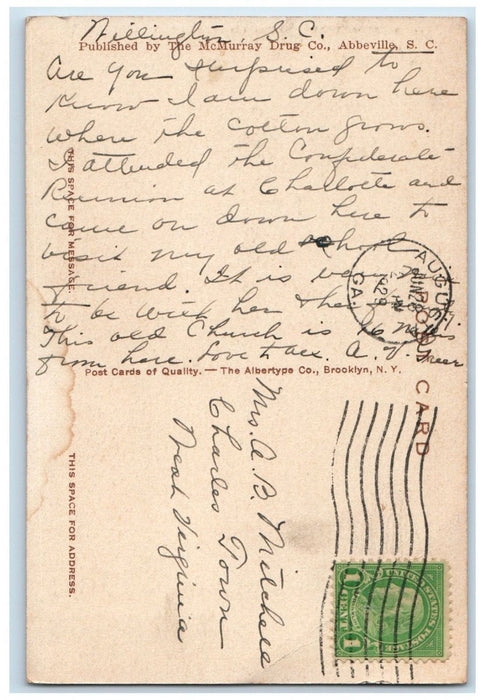 Willington, S. C.
Published by The McMurray Drug Co., Abbeville, S. C.
Are you surprised to
know I am down here
where the cotton grows.
I attended the Confederate
Reunion at Charlotte and
came on down here to
visit my old school
friend. It is very
to be with her
This old Church is 16 miles
from here. Love to all. A.
Post Cards of Quality. — The Albertype Co., Brooklyn, N. Y.
THIS SPACE FOR MESSAGE.
THIS SPACE FOR ADDRESS.
POST CARD
AUGUSTA
JUN 28
1929
GA.
Mrs. A. B. Mitchell
Charles Town
West Virginia
UNITED STATES POSTAGE
1 CENT 1